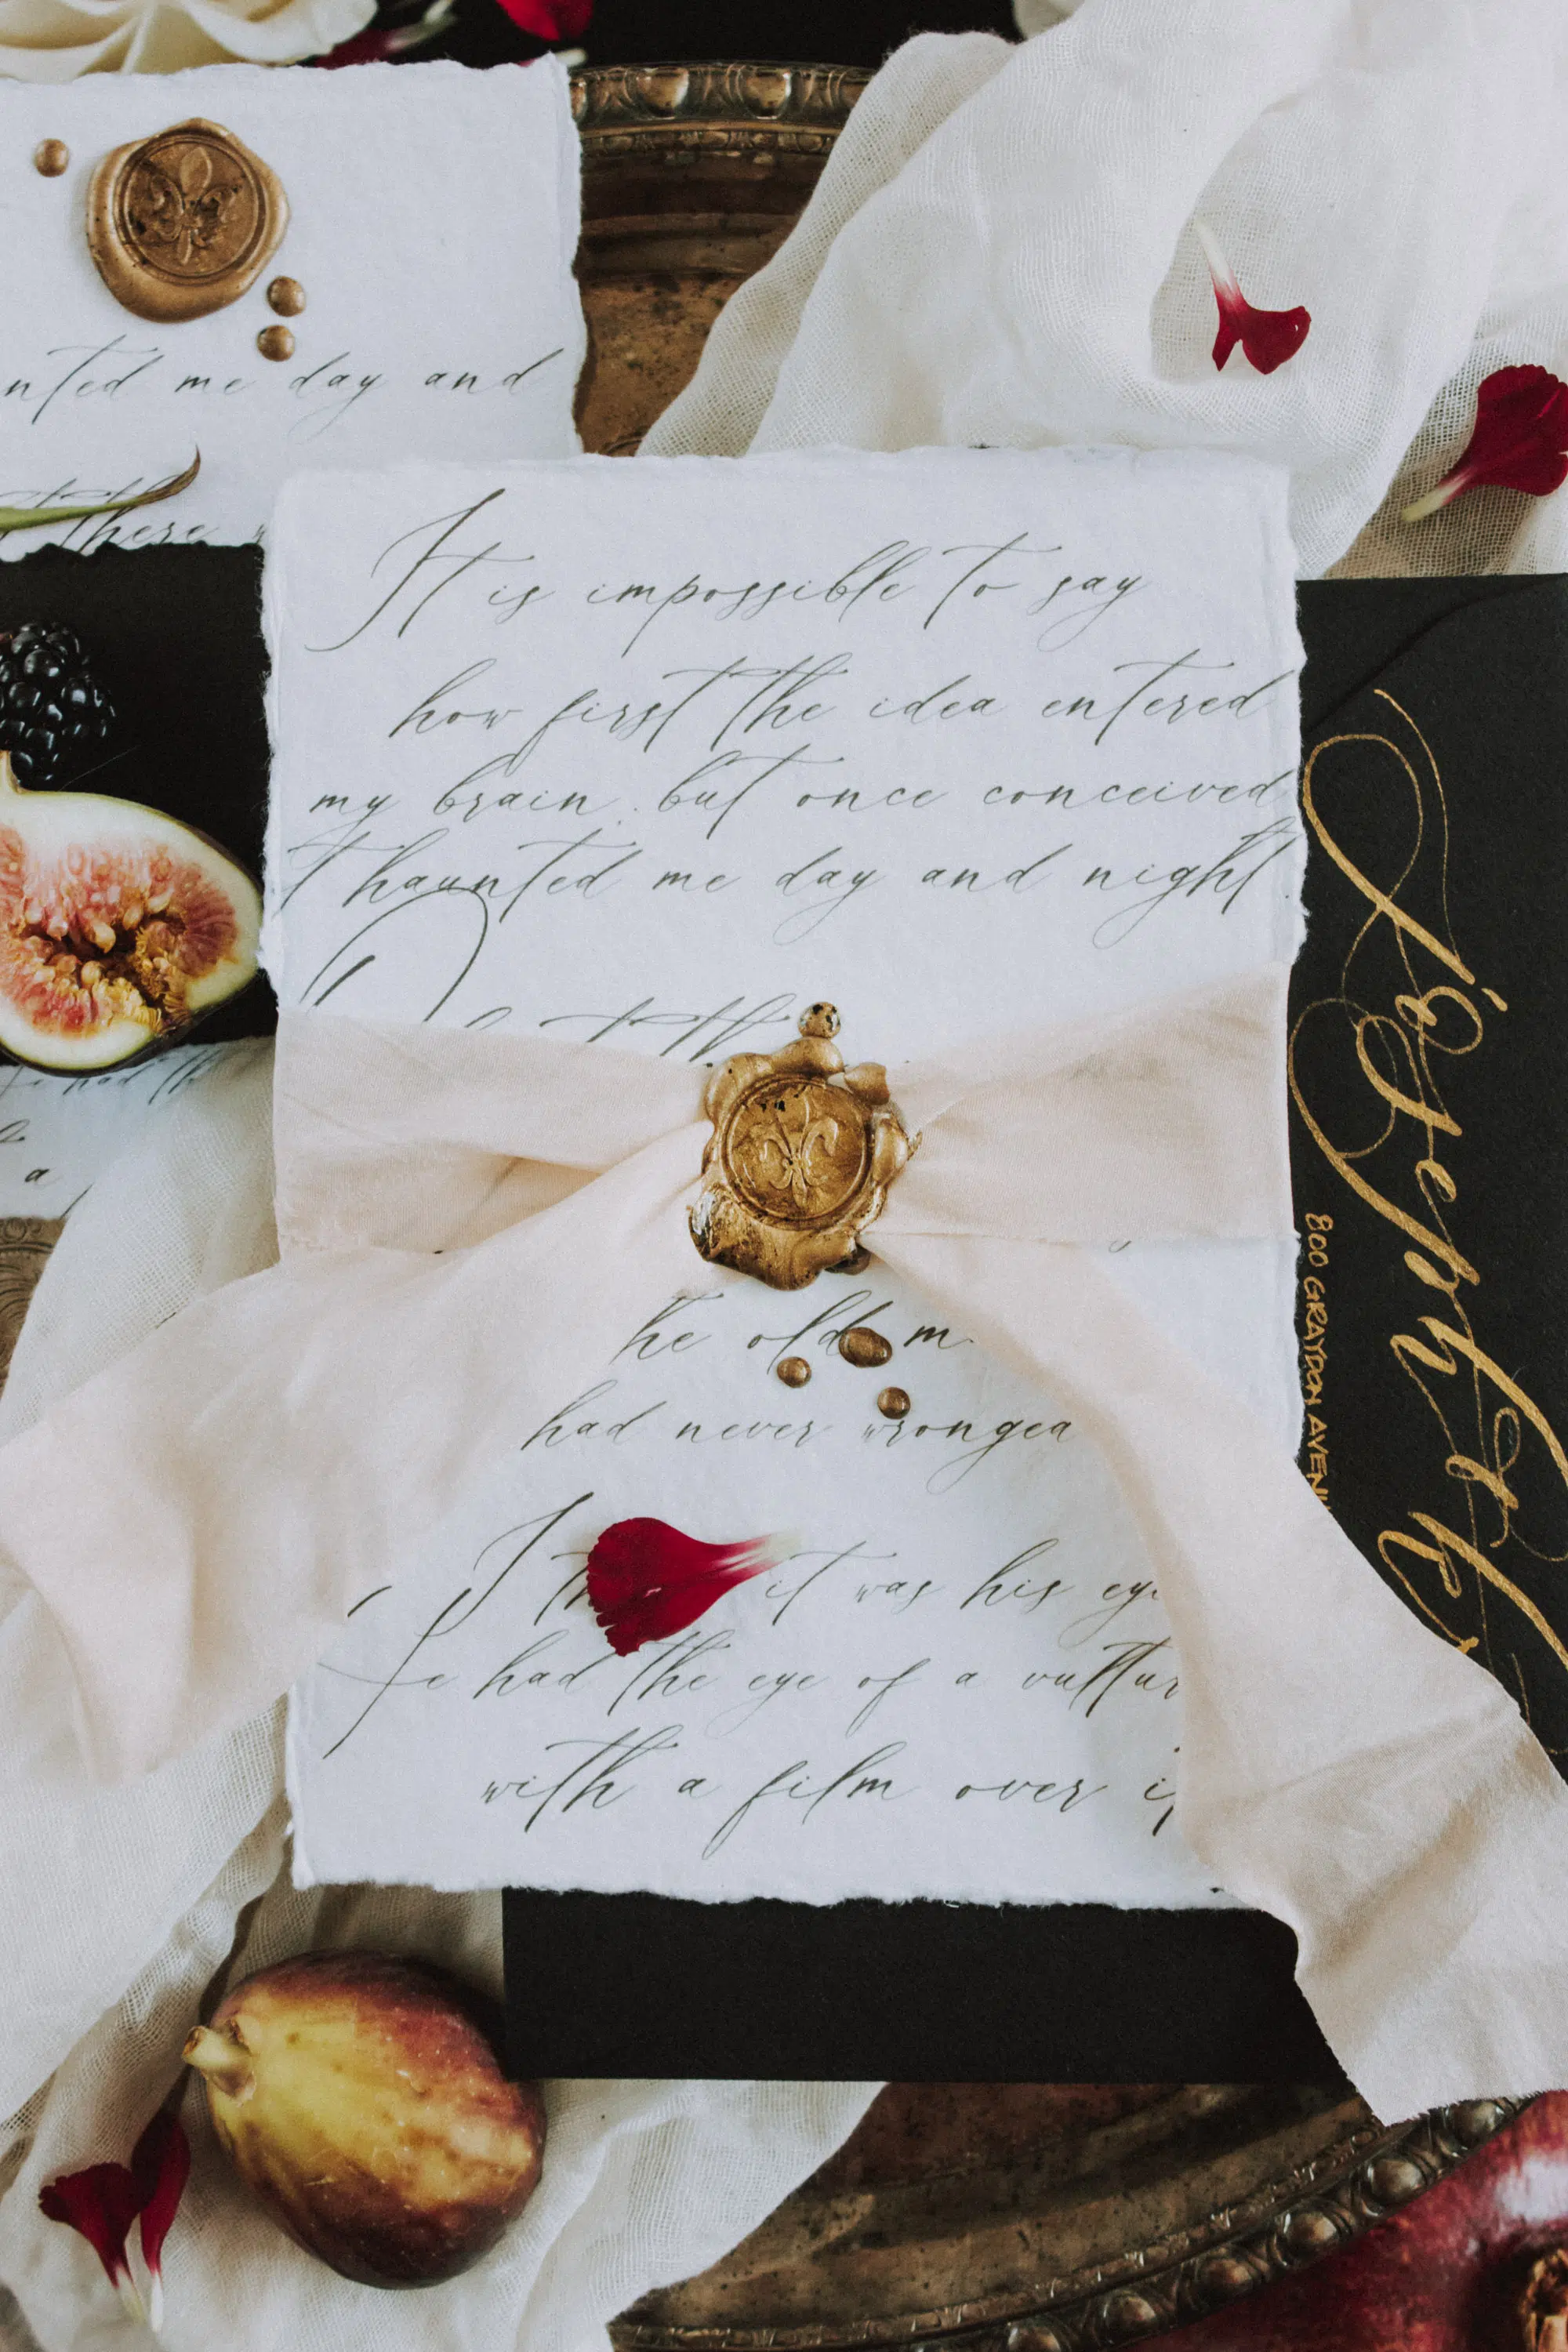 nted me day and
there
It is impossible to say
how first the idea entered
my brain. but once conceived
t haunted me day and night.
he old m
had never wronged
I th it was his eye
e had the eye of a vultur
with a film over i
e had th
a
Joseph
800 GRAYDON AVEN